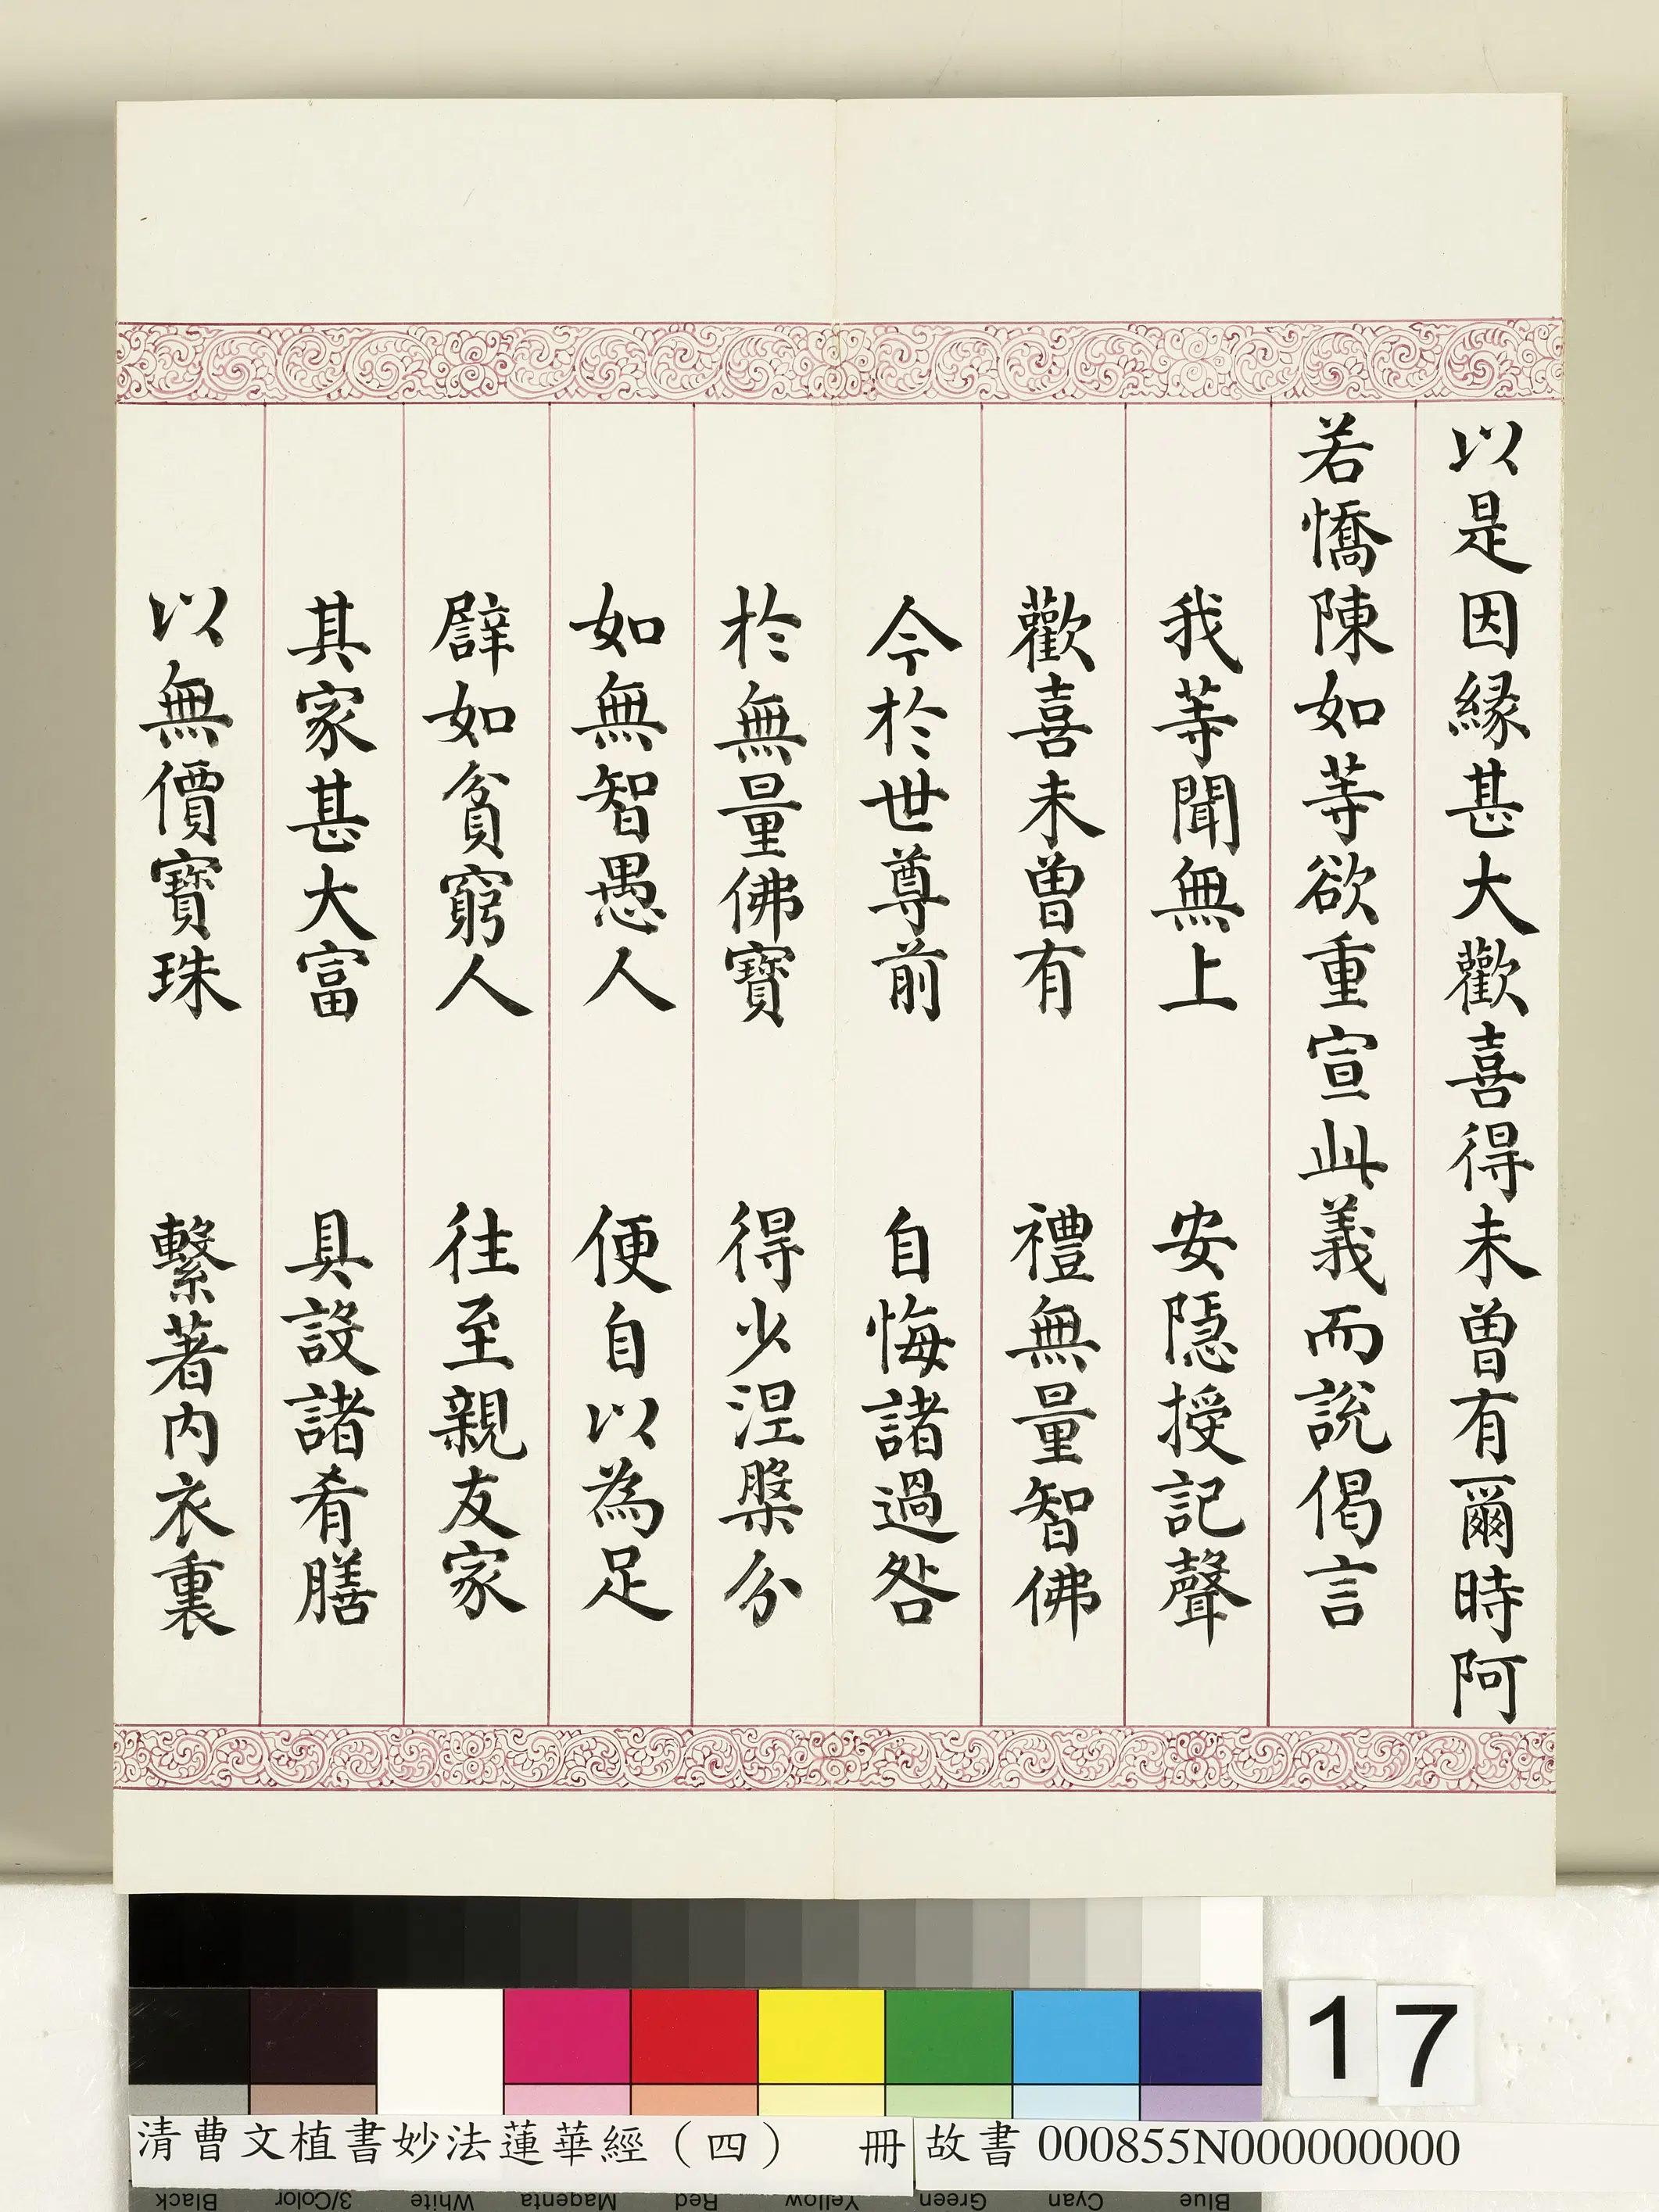 以是因緣甚大歡喜得未曾有爾時阿
若憍陳如等欲重宣此義而說偈言
我等聞無上 安隱授記聲
歡喜未曾有 禮無量智佛
今於世尊前 自悔諸過咎
於無量佛寶 得少涅槃分
如無智愚人 便自以為足
譬如貧窮人 往至親友家
其家甚大富 具設諸肴膳
以無價寶珠 繫著內衣裏
17
清曹文植書妙法蓮華經（四） 冊 故書 000855N000000000
Black 3/Color White Magenta Red Yellow Green Cyan Blue